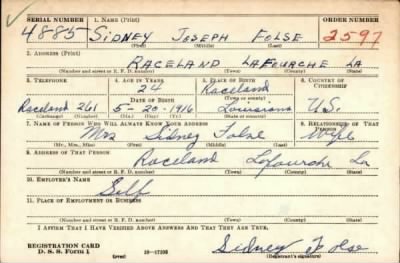 SERIAL NUMBER 1. NAME (Print) ORDER NUMBER
4885 SIDNEY JOSEPH FOLSE 2597
(First) (Middle) (Last)
2. ADDRESS (Print)
RACELAND LAFOURCHE LA
(Number and street or R. F. D. number) (Town) (County) (State)
3. TELEPHONE 4. AGE IN YEARS 5. PLACE OF BIRTH 6. COUNTRY OF CITIZENSHIP
24 Raceland
DATE OF BIRTH (Town or county)
Raceland 261 5-20-1916 Louisiana U.S.
(Exchange) (Number) (Mo.) (Day) (Yr.) (State or country)
7. NAME OF PERSON WHO WILL ALWAYS KNOW YOUR ADDRESS 8. RELATIONSHIP OF THAT PERSON
Mrs Sidney Folse Wife
(Mr., Mrs., Miss) (First) (Middle) (Last)
9. ADDRESS OF THAT PERSON
Raceland Lafourche La
(Number and street or R. F. D. number) (Town) (County) (State)
10. EMPLOYER'S NAME
Self
11. PLACE OF EMPLOYMENT OR BUSINESS
(Number and street or R. F. D. number) (Town) (County) (State)
I AFFIRM THAT I HAVE VERIFIED ABOVE ANSWERS AND THAT THEY ARE TRUE.
REGISTRATION CARD
D. S. S. Form 1 Sidney Folse
(over) (Registrant's signature)